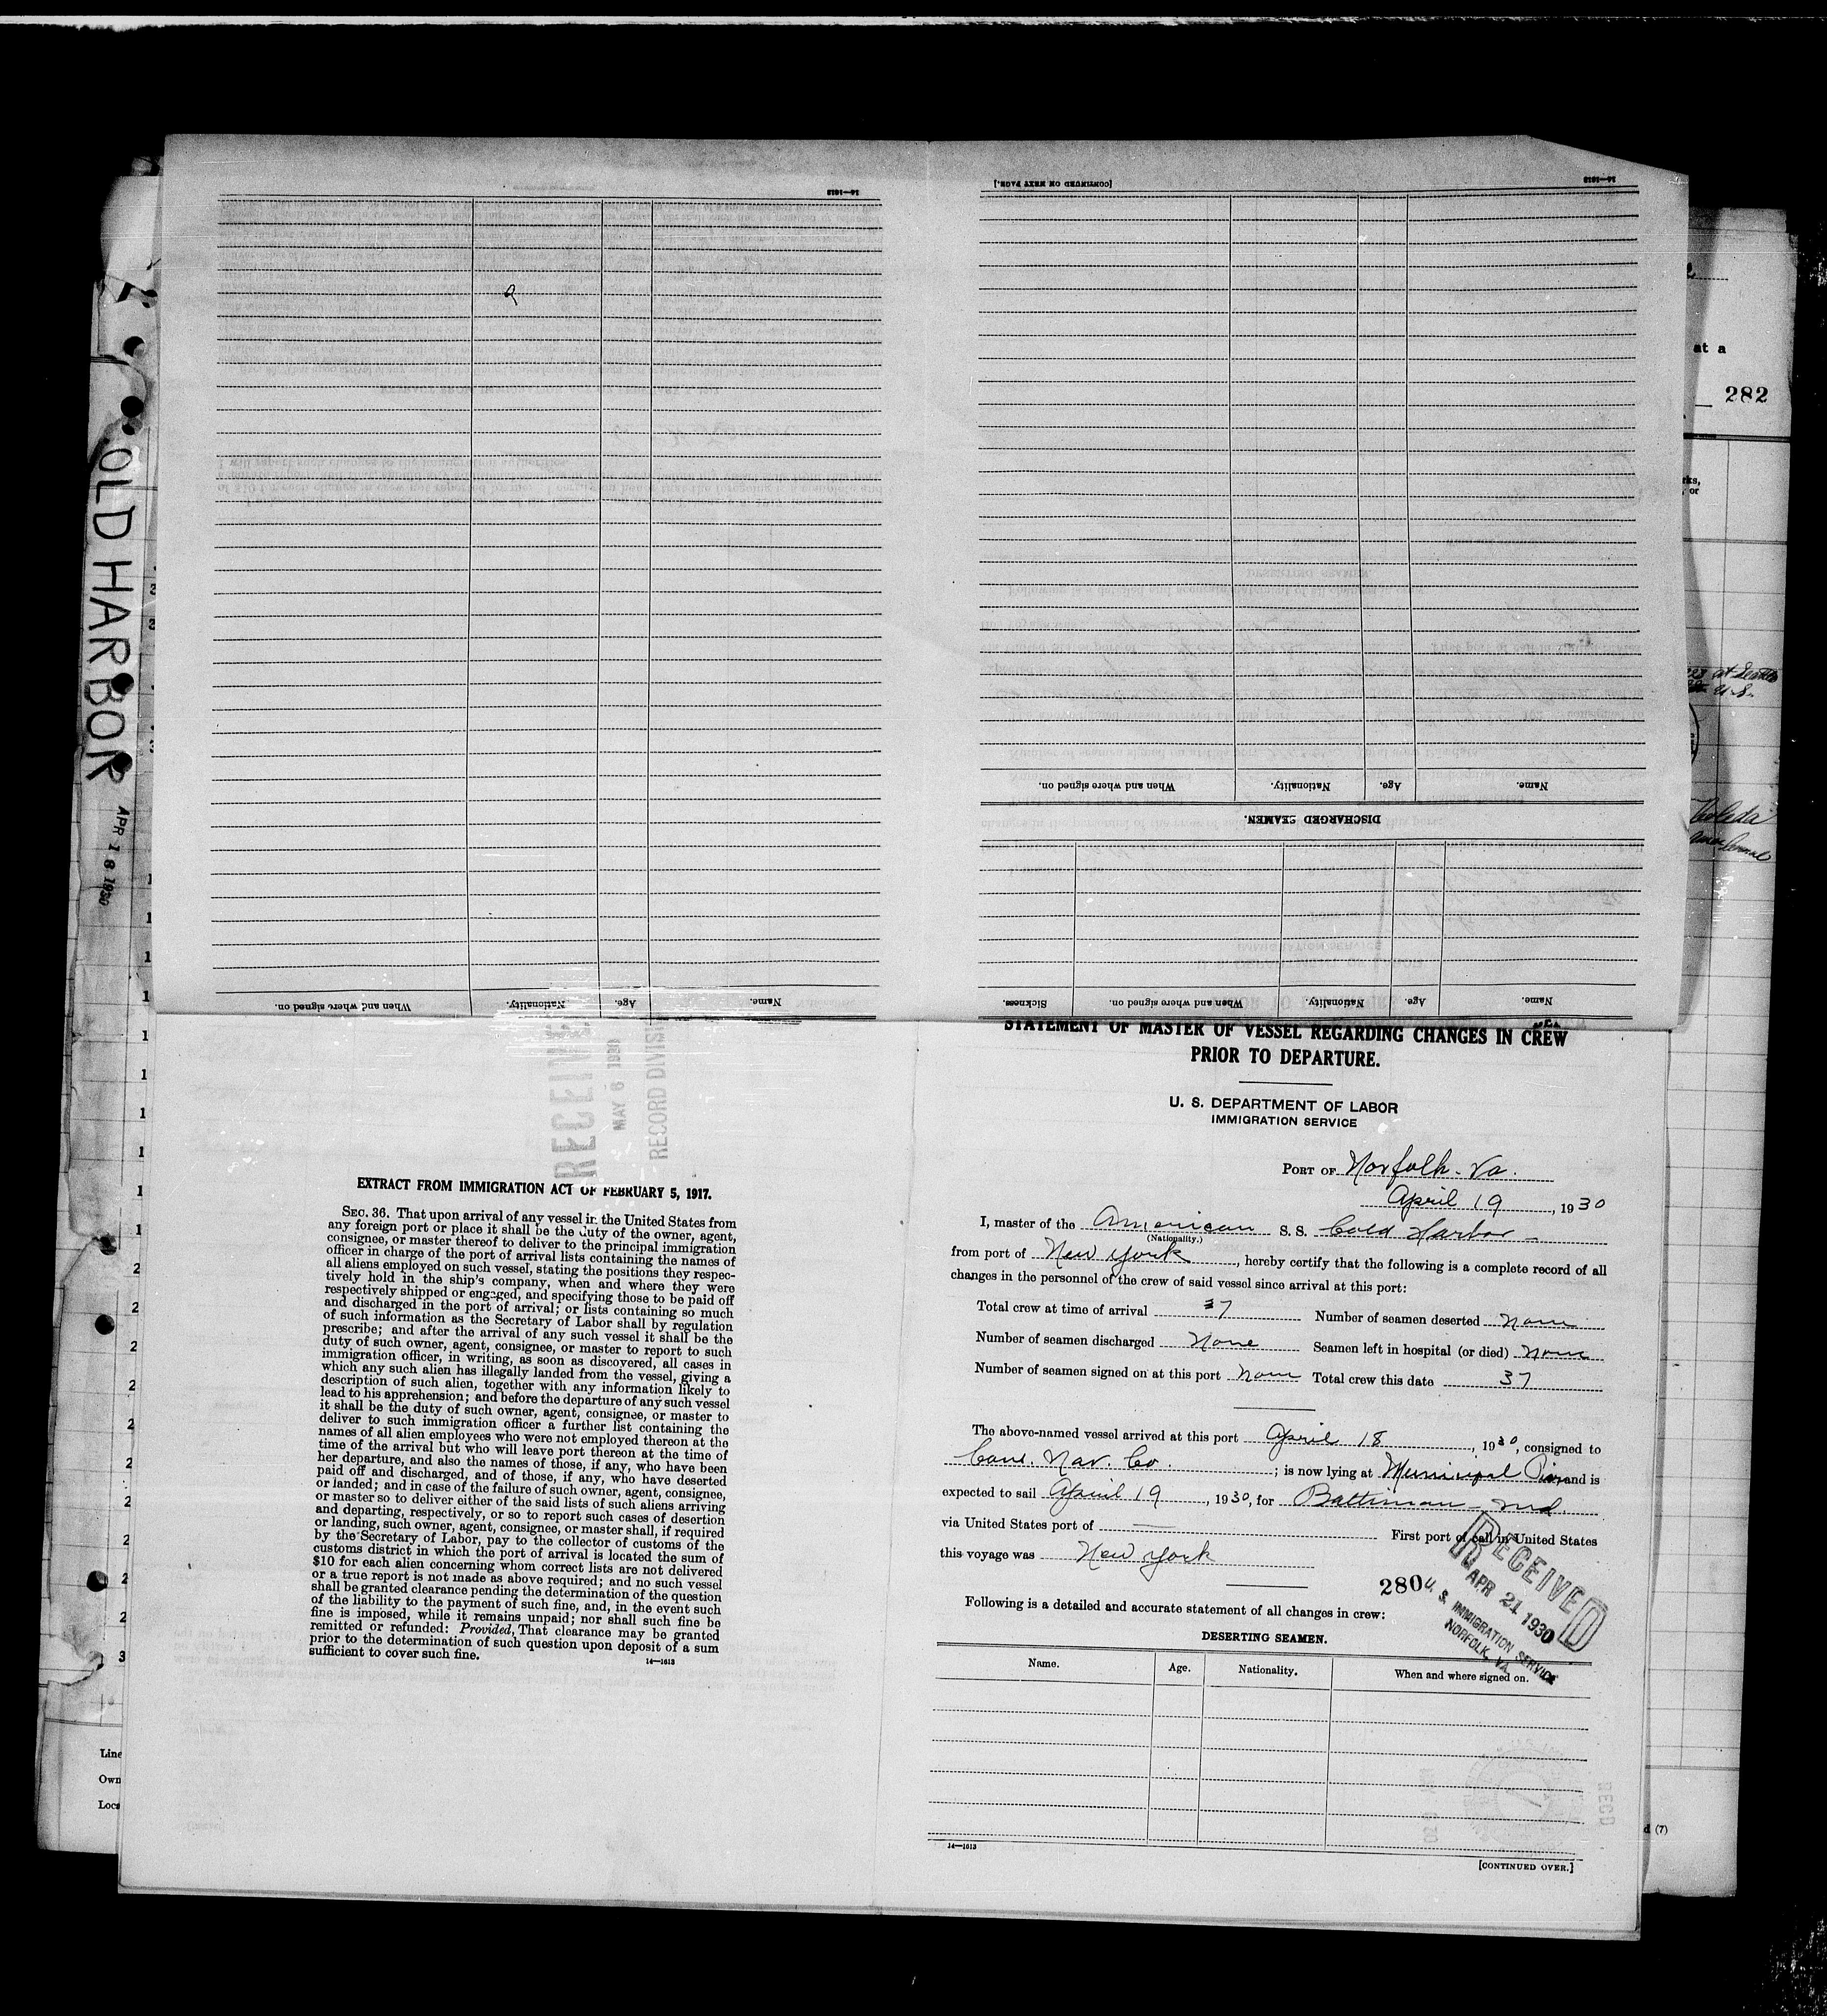 14—1613
[CONTINUED ON NEXT PAGE.]
14—1613
282
at a
rks,
or
at Seattle
U.S.
OLD HARBOR
APR 18 1930
When and where signed on.
Nationality.
Age.
Name.
DISCHARGED SEAMEN.
Sickness.
When and where signed on.
Nationality.
Age.
Name.
When and where signed on.
Nationality.
Age.
Name.
RECEIVED
MAY 6 1930
RECORD DIVISION
EXTRACT FROM IMMIGRATION ACT OF FEBRUARY 5, 1917.
SEC. 36. That upon arrival of any vessel in the United States from
any foreign port or place it shall be the duty of the owner, agent,
consignee, or master thereof to deliver to the principal immigration
officer in charge of the port of arrival lists containing the names of
all aliens employed on such vessel, stating the positions they respec-
tively hold in the ship's company, when and where they were
respectively shipped or engaged, and specifying those to be paid off
and discharged in the port of arrival; or lists containing so much
of such information as the Secretary of Labor shall by regulation
prescribe; and after the arrival of any such vessel it shall be the
duty of such owner, agent, consignee, or master to report to such
immigration officer, in writing, as soon as discovered, all cases in
which any such alien has illegally landed from the vessel, giving a
description of such alien, together with any information likely to
lead to his apprehension; and before the departure of any such vessel
it shall be the duty of such owner, agent, consignee, or master to
deliver to such immigration officer a further list containing the
names of all alien employees who were not employed thereon at the
time of the arrival but who will leave port thereon at the time of
her departure, and also the names of those, if any, who have been
paid off and discharged, and of those, if any, who have deserted
or landed; and in case of the failure of such owner, agent, consignee,
or master so to deliver either of the said lists of such aliens arriving
and departing, respectively, or so to report such cases of desertion
or landing, such owner, agent, consignee, or master shall, if required
by the Secretary of Labor, pay to the collector of customs of the
customs district in which the port of arrival is located the sum of
$10 for each alien concerning whom correct lists are not delivered
or a true report is not made as above required; and no such vessel
shall be granted clearance pending the determination of the question
of the liability to the payment of such fine, and, in the event such
fine is imposed, while it remains unpaid; nor shall such fine be
remitted or refunded: Provided, That clearance may be granted
prior to the determination of such question upon deposit of a sum
sufficient to cover such fine.
14—1613
STATEMENT OF MASTER OF VESSEL REGARDING CHANGES IN CREW
PRIOR TO DEPARTURE.
U. S. DEPARTMENT OF LABOR
IMMIGRATION SERVICE
PORT OF Norfolk. Va.
April 19, 1930
I, master of the American S. S. Cold Harbor
(Nationality.)
from port of New York, hereby certify that the following is a complete record of all
changes in the personnel of the crew of said vessel since arrival at this port:
Total crew at time of arrival 37 Number of seamen deserted None
Number of seamen discharged None Seamen left in hospital (or died) None
Number of seamen signed on at this port None Total crew this date 37
The above-named vessel arrived at this port April 18, 1930, consigned to
Cons. Nav. Co.; is now lying at Municipal Pier, and is
expected to sail April 19, 1930, for Baltimore Md.
via United States port of — First port of call in United States
this voyage was New York
280
RECEIVED
APR 21 1930
U. S. IMMIGRATION SERVICE
NORFOLK, VA.
Following is a detailed and accurate statement of all changes in crew:
DESERTING SEAMEN.
Name. Age. Nationality. When and where signed on.
14—1613
[CONTINUED OVER.]
Line
Own
Loca
d (7)